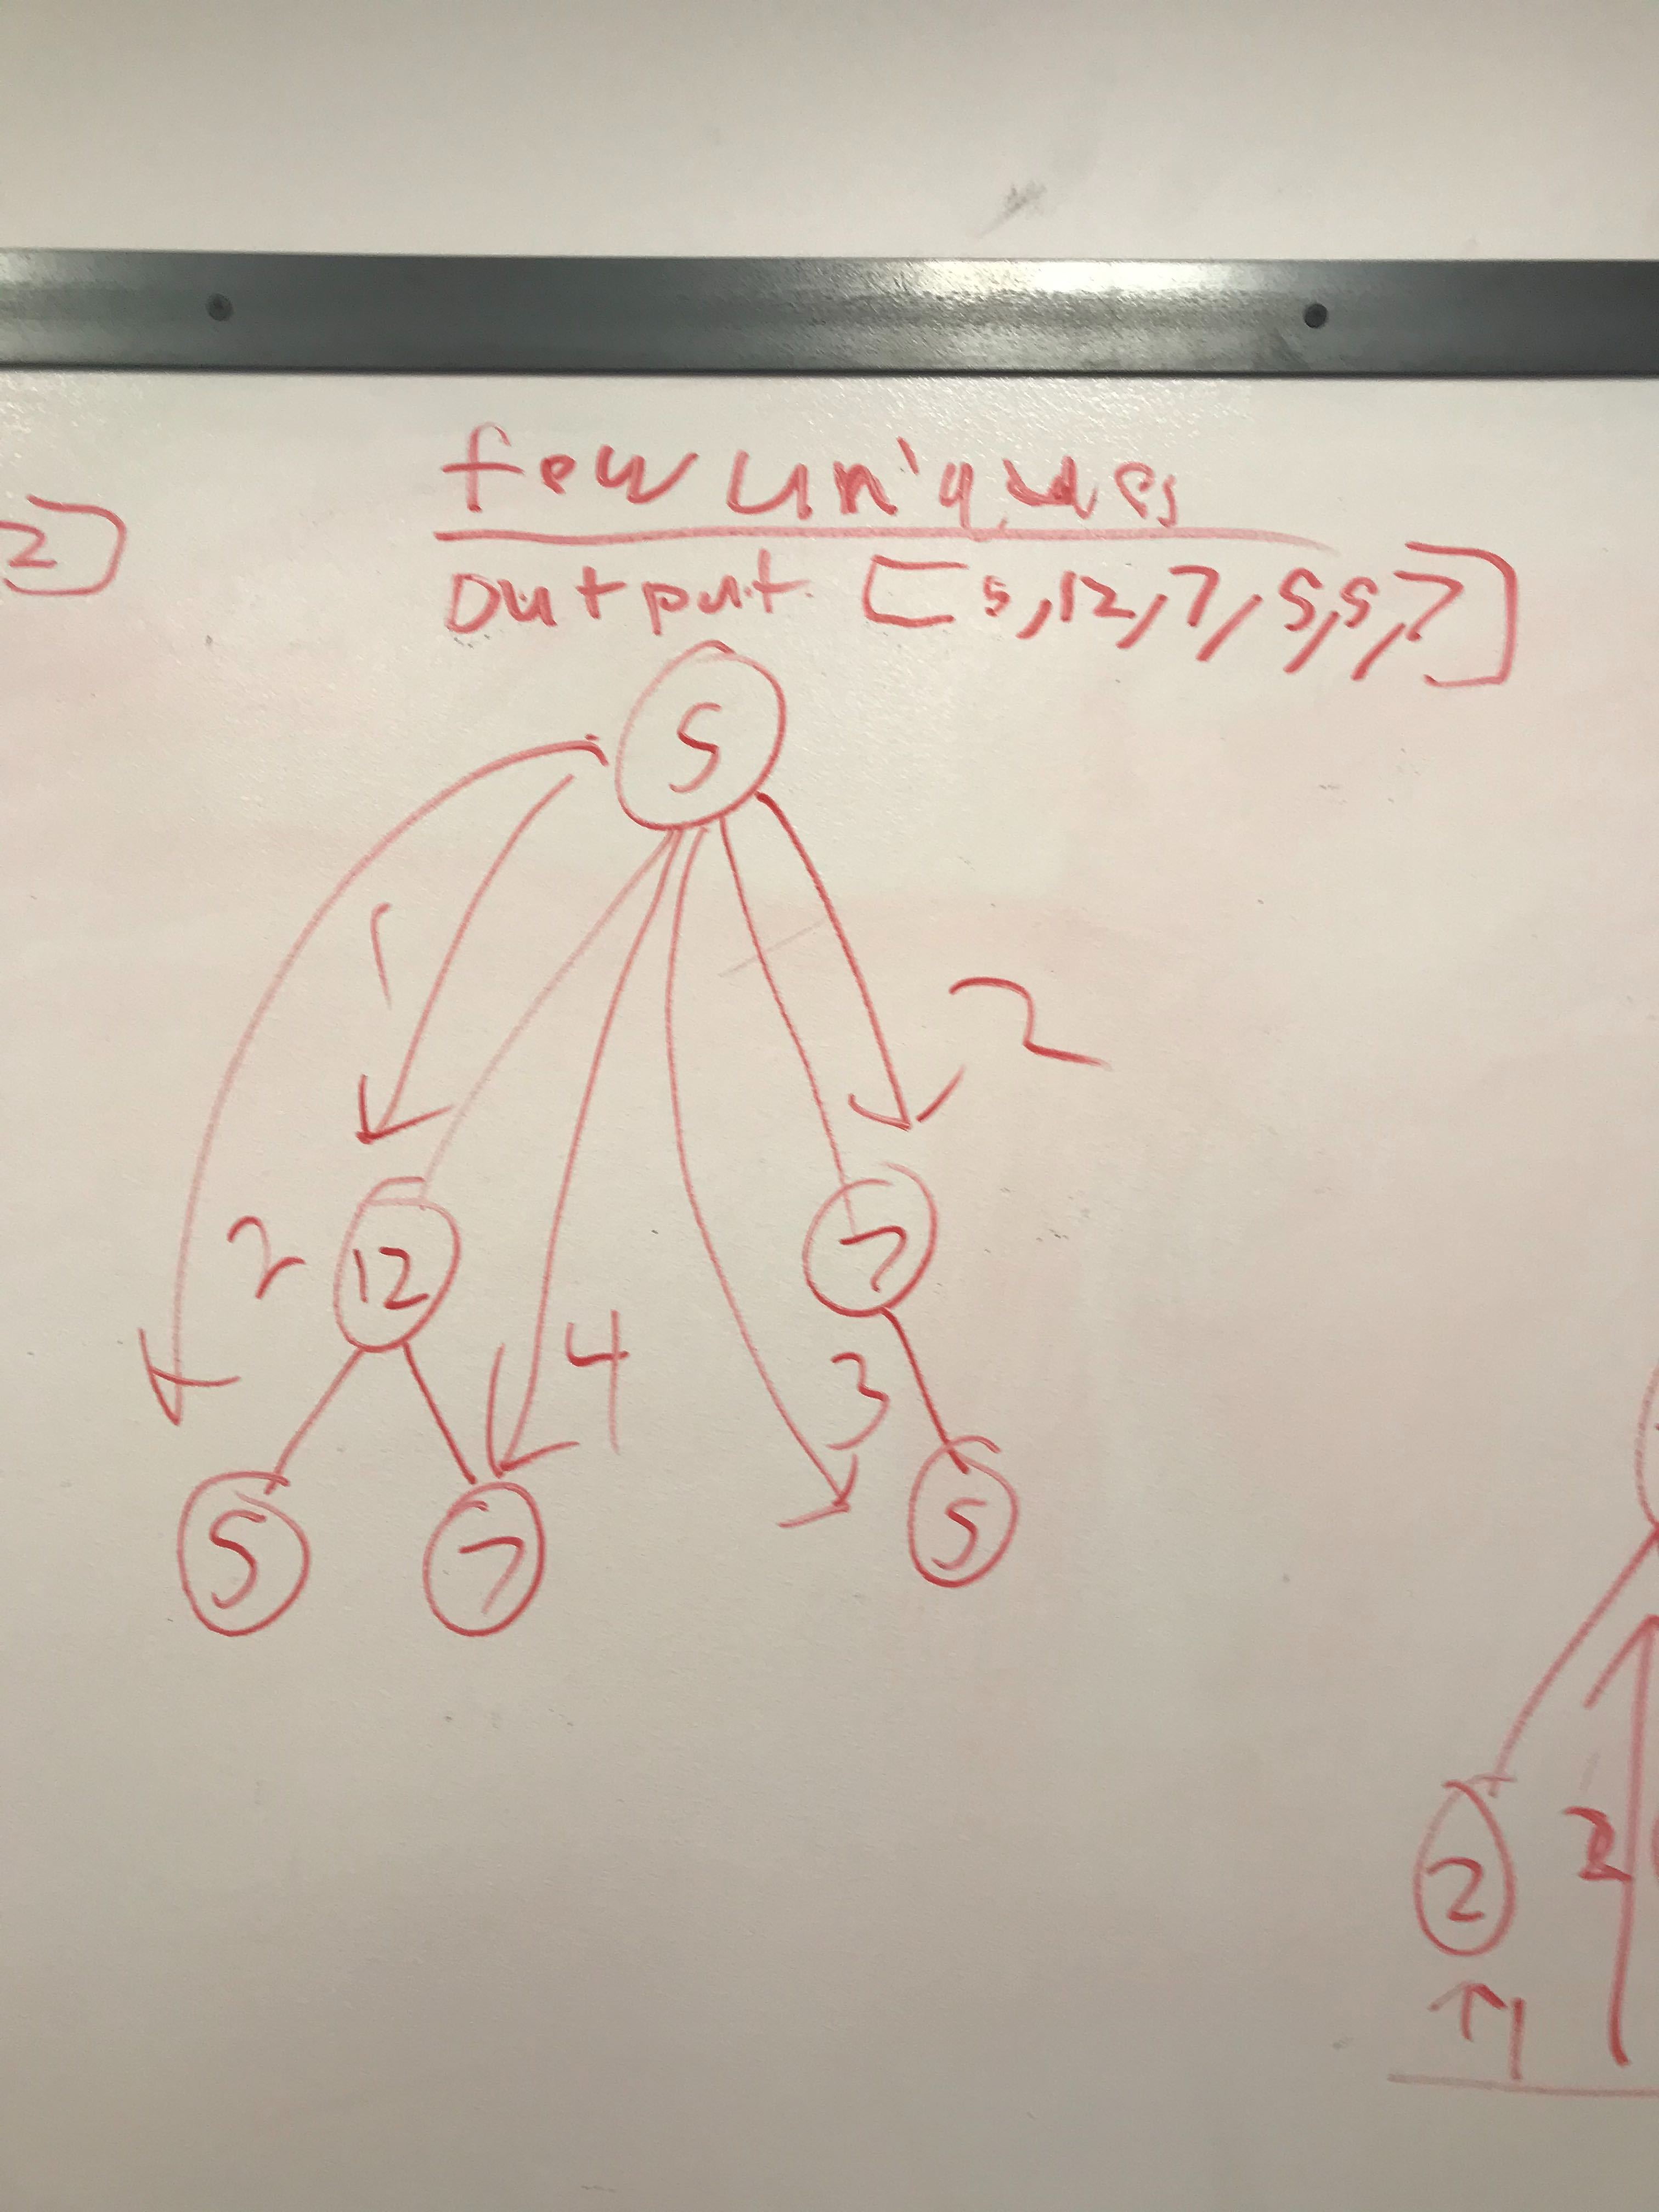 2]
few uniques
output [5,12,7,5,5,7]
5
1
2
2
12
7
4
3
5
7
5
2
2
1